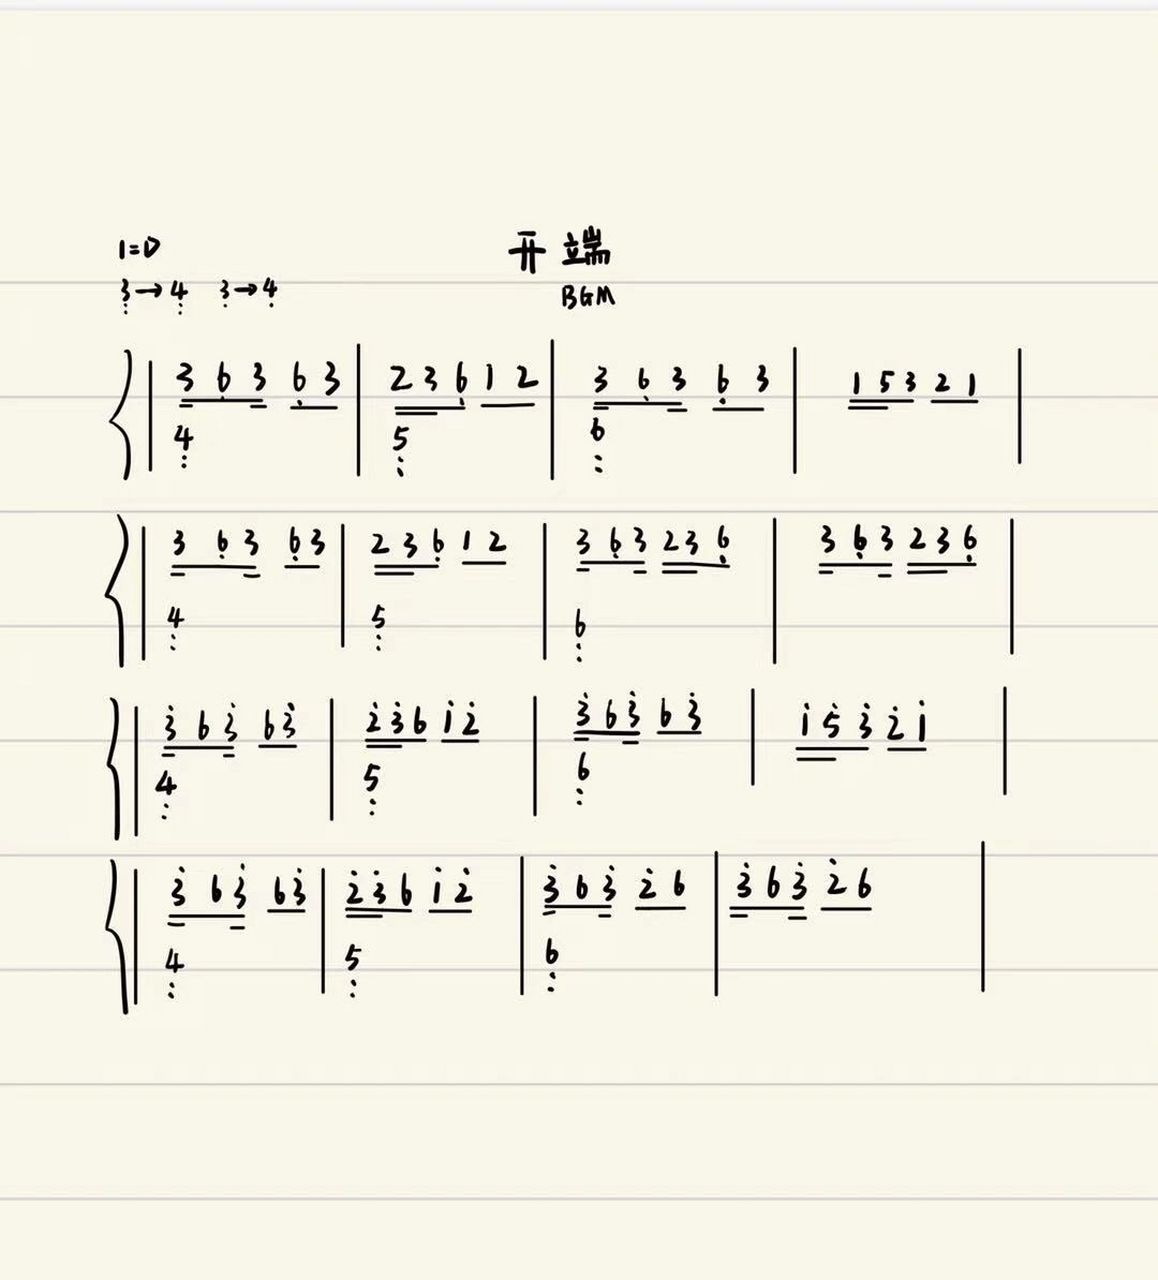 1=D
开端
3→4 3→4
BGM
3 6 3 6 3 | 2 3 6 1 2 | 3 6 3 6 3 | 1 5 3 2 1 |
4 5 6
3 6 3 6 3 | 2 3 6 1 2 | 3 6 3 2 3 6 | 3 6 3 2 3 6 |
4 5 6
3 6 3 6 3 | 2 3 6 1 2 | 3 6 3 6 3 | 1 5 3 2 1 |
4 5 6
3 6 3 6 3 | 2 3 6 1 2 | 3 6 3 2 6 | 3 6 3 2 6 |
4 5 6